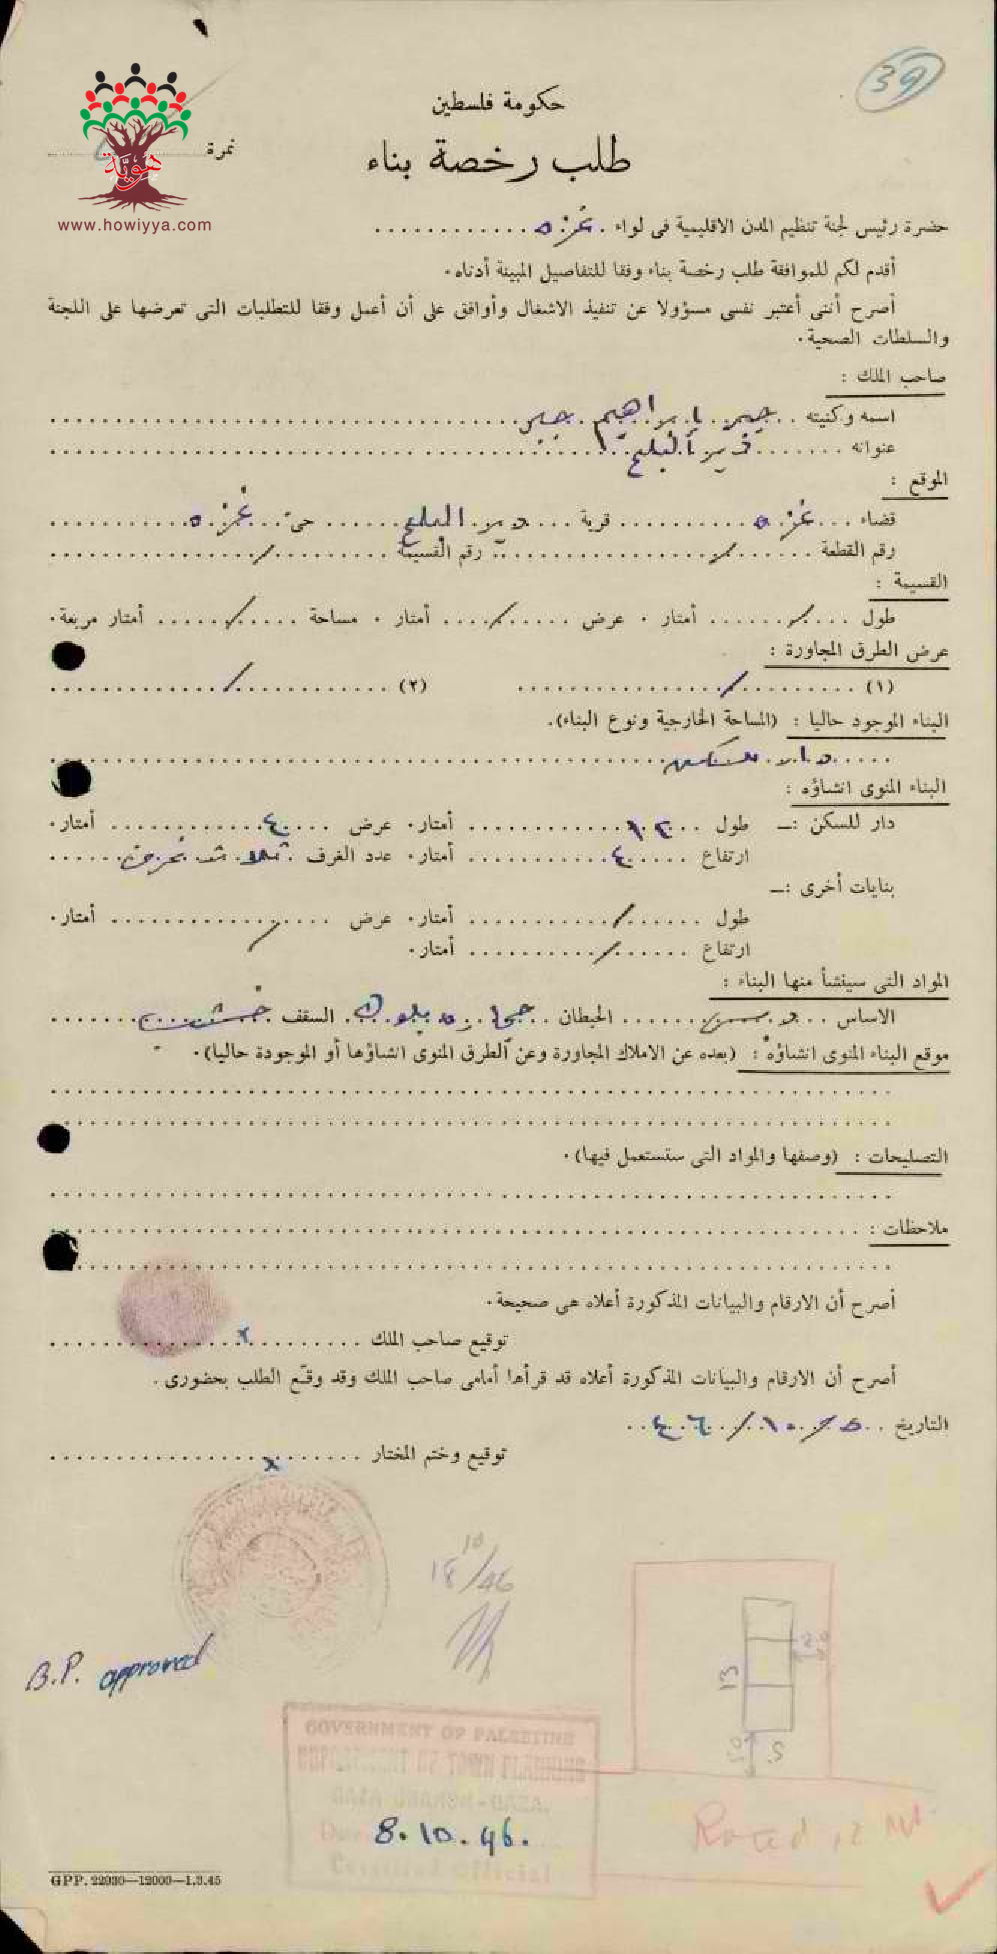 39
حكومة فلسطين
هوية
نمرة
طلب رخصة بناء
www.howiyya.com
حضرة رئيس لجنة تنظيم المدن الاقليمية فى لواء غزه
أقدم لكم للموافقة طلب رخصة بناء وفقا للتفاصيل المبينة أدناه.
أصرح أننى أعتبر نفسى مسؤولا عن تنفيذ الاشغال وأوافق على أن أعمل وفقا للتطلبات التى تعرضها على اللجنة
والسلطات الصحية.
صاحب الملك :
اسمه وكنيته جبر ابراهيم جبر
عنوانه دير البلح
الموقع :
قضاء غزه قرية دير البلح حى غزه
رقم القطعة / رقم القسيمة /
القسيمة :
طول / أمتار . عرض / أمتار . مساحة / أمتار مربعة.
عرض الطرق المجاورة :
(١) / (٢) /
البناء الموجود حاليا : (المساحة الخارجية ونوع البناء).
دار سكن
البناء المنوى انشاؤه :
دار للسكن :— طول أمتار. عرض أمتار.
ارتفاع ٤ أمتار. عدد الغرف ثلاث غرف
بنايات أخرى :—
طول / أمتار. عرض / أمتار.
ارتفاع / أمتار.
المواد التى سينشأ منها البناء :
الاساس الحيطان حجاره بلوك السقف
موقع البناء المنوى انشاؤه : (بعده عن الاملاك المجاورة وعن الطرق المنوى انشاؤها أو الموجودة حاليا).
التصليحات : (وصفها والمواد التى ستستعمل فيها).
ملاحظات :
أصرح أن الارقام والبيانات المذكورة أعلاه هى صحيحة.
توقيع صاحب الملك x
أصرح أن الارقام والبيانات المذكورة أعلاه قد قرأها أمامى صاحب الملك وقد وقّع الطلب بحضورى .
التاريخ ٥/١٠/٤٦
توقيع وختم المختار x
18/10/46
B.P. approved
13
GOVERNMENT OF PALESTINE
DEPARTMENT OF TOWN PLANNING
GAZA BRANCH - GAZA.
8.10.46.
Official
Road 12 Mt
GPP. 22930—12000—1.3.45